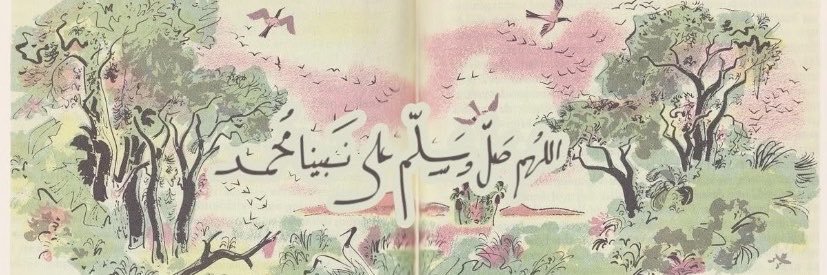 اللهم صَلّ وسَلِّم على نَبينا مُحمد